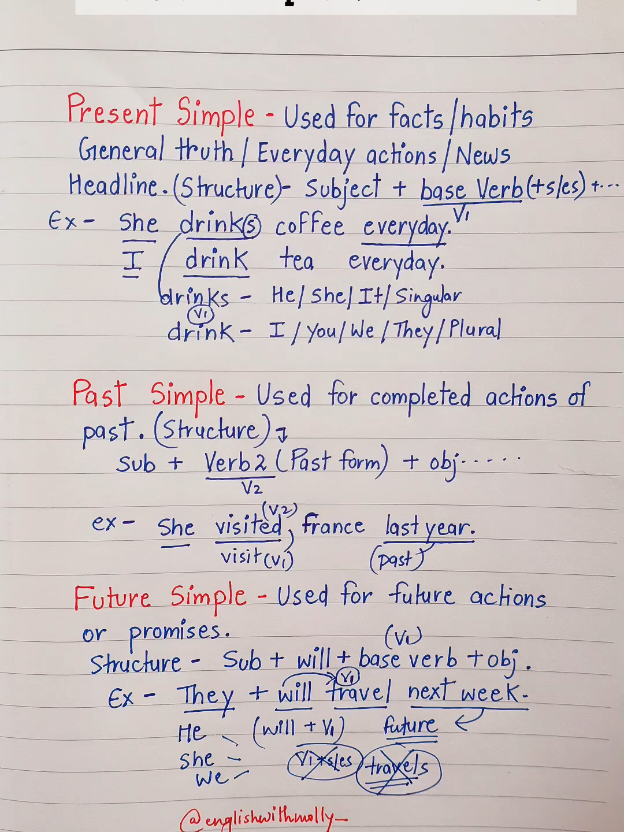 Present Simple - Used for facts/habits
General truth / Everyday actions / News
Headline. (Structure)- Subject + base Verb (+s/es) +...
V1
Ex - She drink(s) coffee everyday.
I drink tea everyday.
drinks - He/She/It/Singular
(V1)
drink - I/You/We/They/Plural
Past Simple - Used for completed actions of
past. (Structure)
Sub + Verb2 (Past form) + obj.....
V2
(V2)
ex - She visited france last year.
visit(V1) (past)
Future Simple - Used for future actions
or promises.
(V1)
Structure - Sub + will + base verb + obj.
(V1)
Ex - They + will travel next week.
He (will + V1) future
She V1+s/es travels
We
@englishwithmolly_